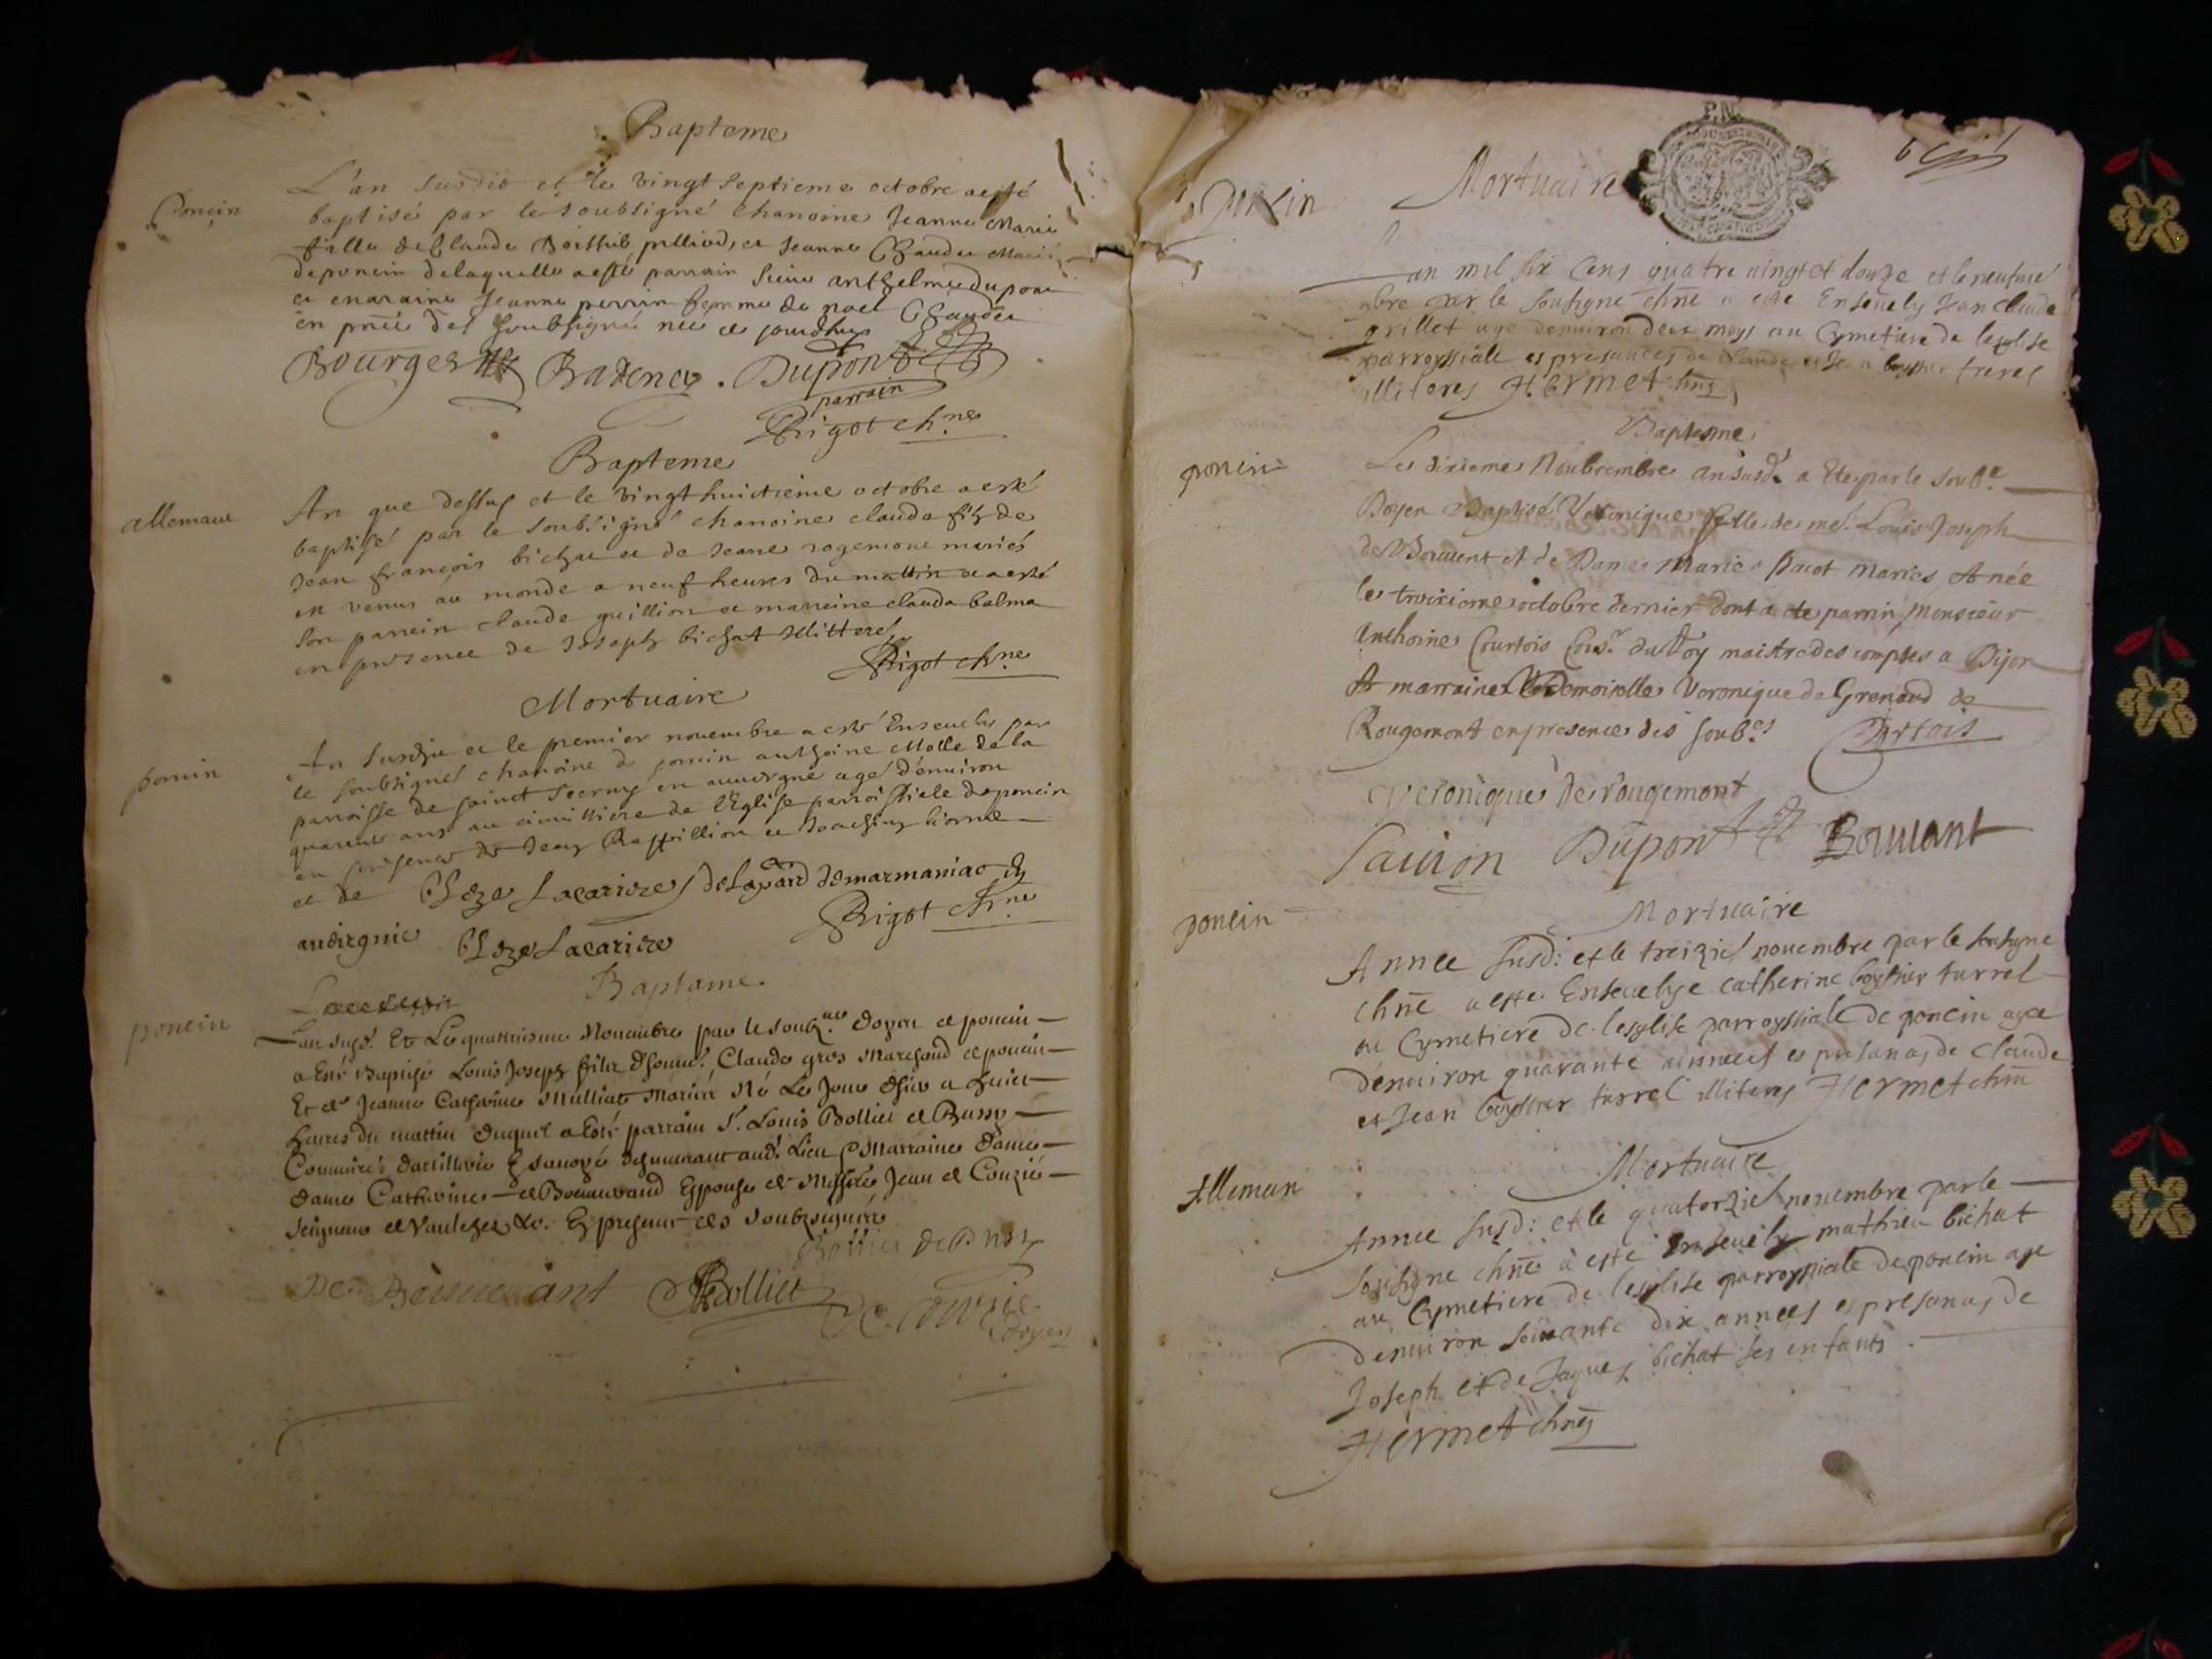 Bapteme
Poncin
L'an susdit et le vingt septieme octobre a esté
baptisé par le soubsigné chanoine Jeanne Marie
fille de Claude pelliod, et Jeanne Chaudet
de poncin de laquelle a esté parrain sieur anthelme dupont
et maraine Jeanne perrin femme de noel Chaudet
en pnce des soubsignés nee ce jourdhuy
Bourges Badena. Dupont
parrain
Rigot chne
Bapteme
allemant
An que dessus et le vingt huictieme octobre a esté
baptisé par le soubsigné chanoine claude filz de
Jean françois bichat et de Jeane rogemont mariés
et venus au monde a neuf heures du mattin et a esté
son parrein claude guillion et marreine clauda balma
en presence de Joseph bichat illitteré
Rigot chne
Mortuaire
poncin
An susdit et le premier novembre a esté Enseuely par
le soubsigné chanoine de poncin anthoine Molle de la
parroisse de sainct en auvergne agé d'enuiron
quarente ans au cimittiere de l'Eglise parroissiele de poncin
en presence de Jean et
et de Lacarière
Rigot chne
Lacarière
Baptame
poncin
L'an susd. Et Le quattriesme Nouembre par le soubzné doyen de poncin
a Esté Baptisé Louis Joseph filz d'honn. Claude gros Marchand de poncin
Et de Jeanne Catherine Mulliat Mariés Né Le Jour d'hier a huict
heures du mattin duquel a Esté parrain Sr. Louis Bolliet de Bussy
Commiré d'artillerie demeurant aud. Lieu Marraine dame
dame Catherine de Bouuand Espouse de Messire Jean de Couzié
seigneur de Vauleger &c. En presence des soubzsignés
Bolliet de Bussy
De Bouuant Bolliet De Couzie
doyen
poncin
Mortuaire
L'an mil six cens quatre vingt et douze et le neufuie
nbre par le sousigne chne a este Enseuely Jean claude
grillet age denuiron deux moys au Cymetiere de leglise
parroyssialle es presances de Claude et Jean freres
illiteres Hermet chne
Baptesme
poncin
Le dixieme Noubrembre an susd. a Ete par le soube
Doyen Baptisé Veronique fille de mes. Louis Joseph
de Bouuent et de Dame Marie pacot Maries, et née
le troixieme octobre dernier dont a ete parrin Monsieur
Anthoine Courtois Consr. du Roy maitre des comptes a Dijon
et marraine Demoiselle Veronique de Grenaud de
Rougemont en presence des soubés
Curtois
Veronique de rougemont
Sauion Dupont Bouuant
poncin
Mortuaire
Annee susd: et le treizie nouembre par le sousigne
chne a este Enseuelye catherine turrel
au Cymetiere de leglise parroyssiale de poncin agee
denuiron quarante annees es presances de Claude
et Jean turrel illiteres Hermet chne
Mortuaire
Alleman
Annee susd: et le quatorzie nouembre par le
sousigne chne a este Enseuely mathieu bichat
au Cymetiere de leglise parroyssiale de poncin age
denuiron soixante dix annees es presances de
Joseph et de Jaques bichat ses enfants
Hermet chne